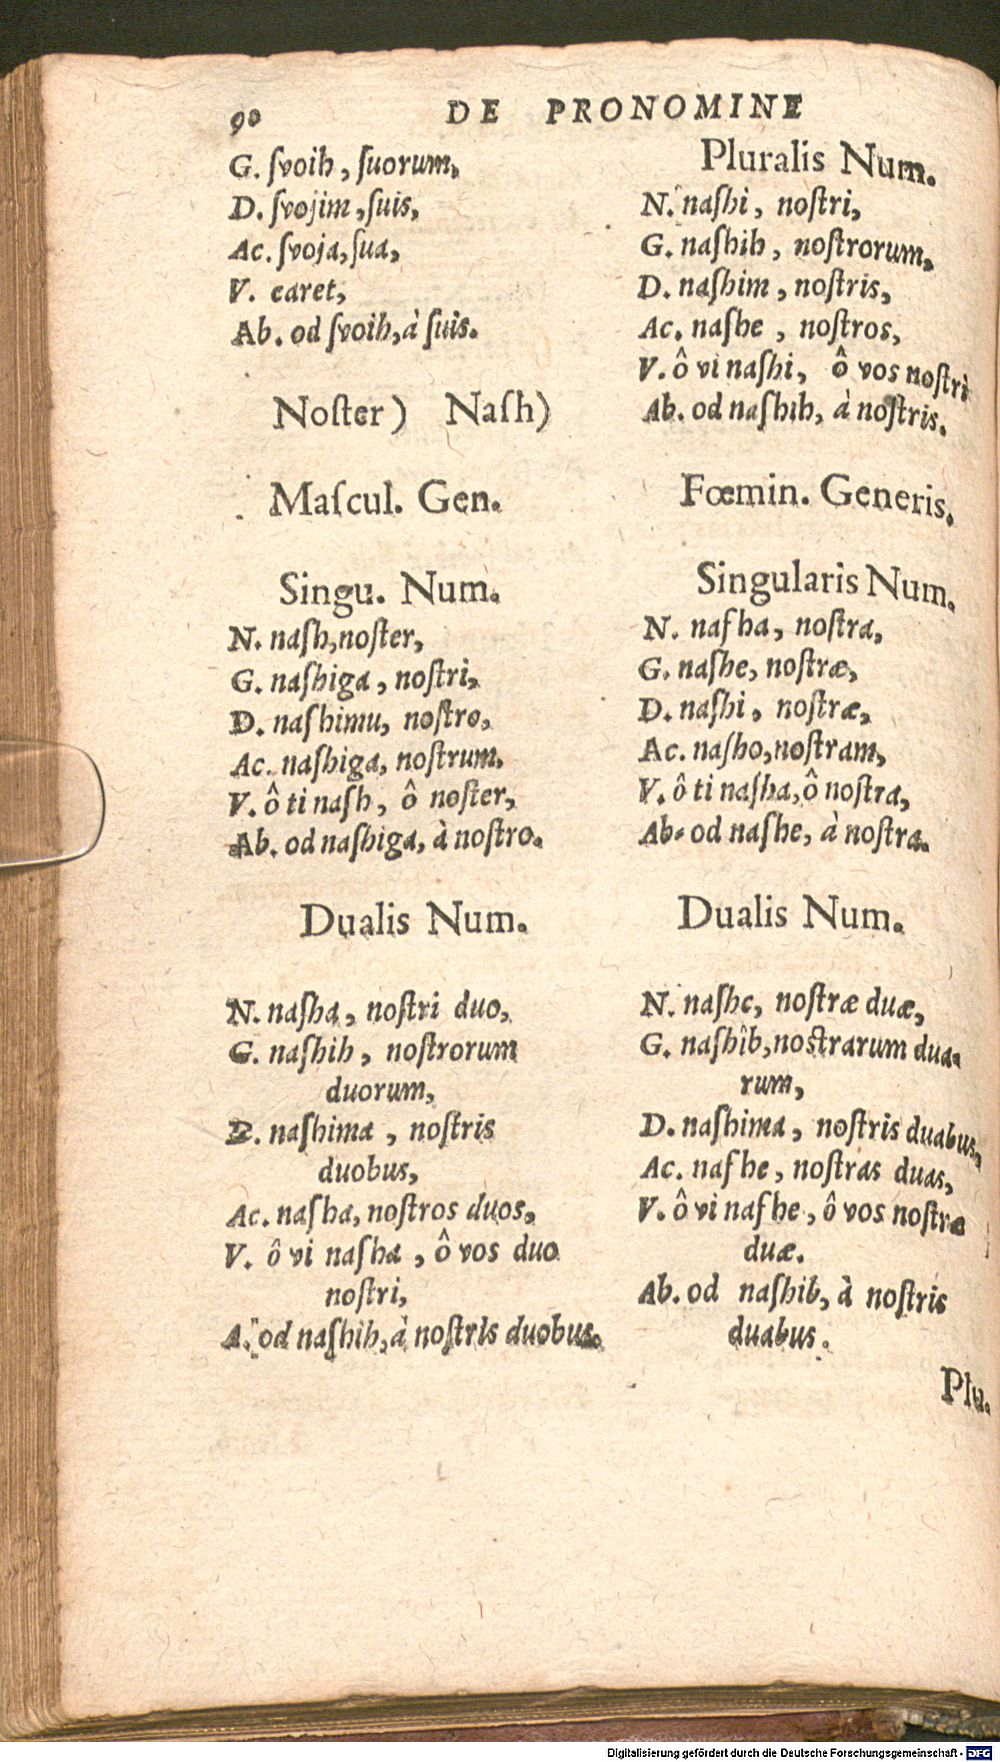 90 DE PRONOMINE
G. ſvoih, ſuorum,
D. ſvojim, ſuis,
Ac. ſvoja, ſua,
V. caret,
Ab. od ſvoih, à ſuis.
Noſter) Naſh)
Maſcul. Gen.
Singu. Num.
N. naſh, noſter,
G. naſhiga, noſtri,
D. naſhimu, noſtro,
Ac. naſhiga, noſtrum,
V. ô ti naſh, ô noſter,
Ab. od naſhiga, à noſtro.
Dualis Num.
N. naſha, noſtri duo,
G. naſhih, noſtrorum
duorum,
D. naſhima, noſtris
duobus,
Ac. naſha, noſtros duos,
V. ô vi naſha, ô vos duo
noſtri,
A. od naſhih, à noſtris duobus.
Pluralis Num.
N. naſhi, noſtri,
G. naſhih, noſtrorum,
D. naſhim, noſtris,
Ac. naſhe, noſtros,
V. ô vi naſhi, ô vos noſtri
Ab. od naſhih, à noſtris.
Fœmin. Generis.
Singularis Num.
N. naſha, noſtra,
G. naſhe, noſtræ,
D. naſhi, noſtræ,
Ac. naſho, noſtram,
V. ô ti naſha, ô noſtra,
Ab. od naſhe, à noſtra.
Dualis Num.
N. naſhe, noſtræ duæ,
G. naſhih, noſtrarum dua-
rum,
D. naſhima, noſtris duabus,
Ac. naſhe, noſtras duas,
V. ô vi naſhe, ô vos noſtræ
duæ.
Ab. od naſhih, à noſtris
duabus.
Plu.
Digitalisierung gefördert durch die Deutsche Forschungsgemeinschaft - DFG